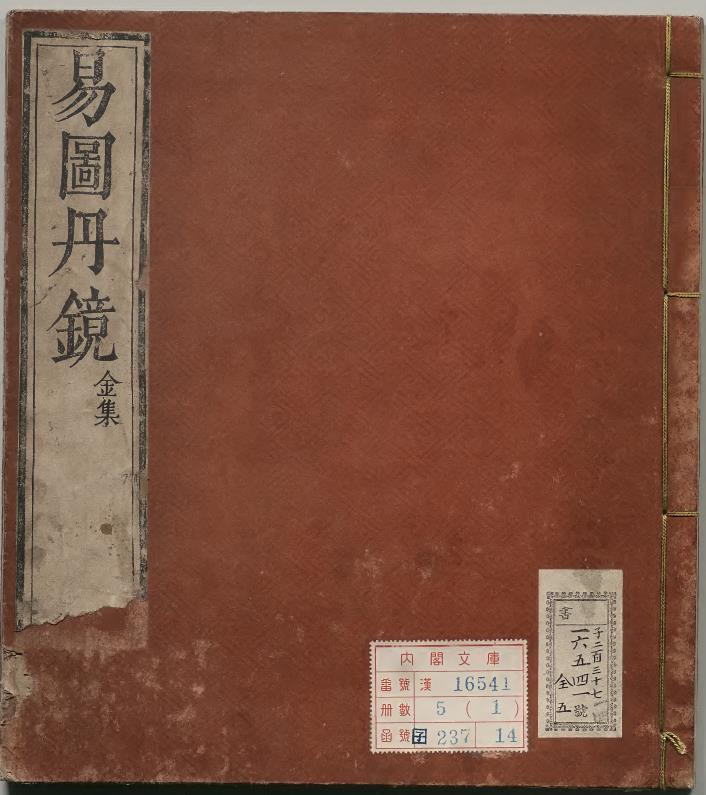 易圖丹鏡
金集
內閣文庫
番號 漢 16541
册數 5 ( 1 )
函號 子 237 14
書
子二百三十七
一六五四一號
全五